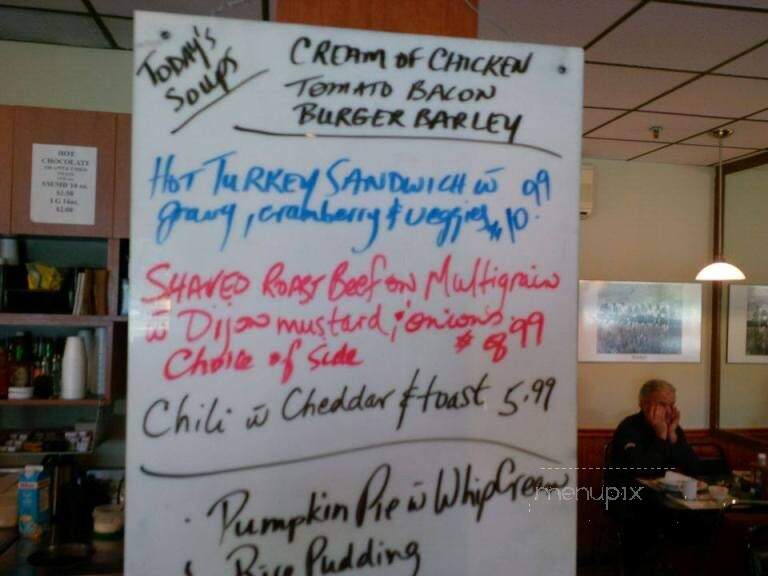 Today's Soups
CREAM OF CHICKEN
TOMATO BACON
BURGER BARLEY
HOT TURKEY SANDWICH w̄
gravy, cranberry & veggies $10.99
SHAVED ROAST Beef on Multigrain
w̄ Dijon mustard, & onions.
Choice of Side $8.99
Chili w̄ Cheddar & toast 5.99
· Pumpkin Pie w̄ Whip Cream
Rice Pudding
HOT
CHOCOLATE
$1.50
LG 16oz.
$2.00
menupix